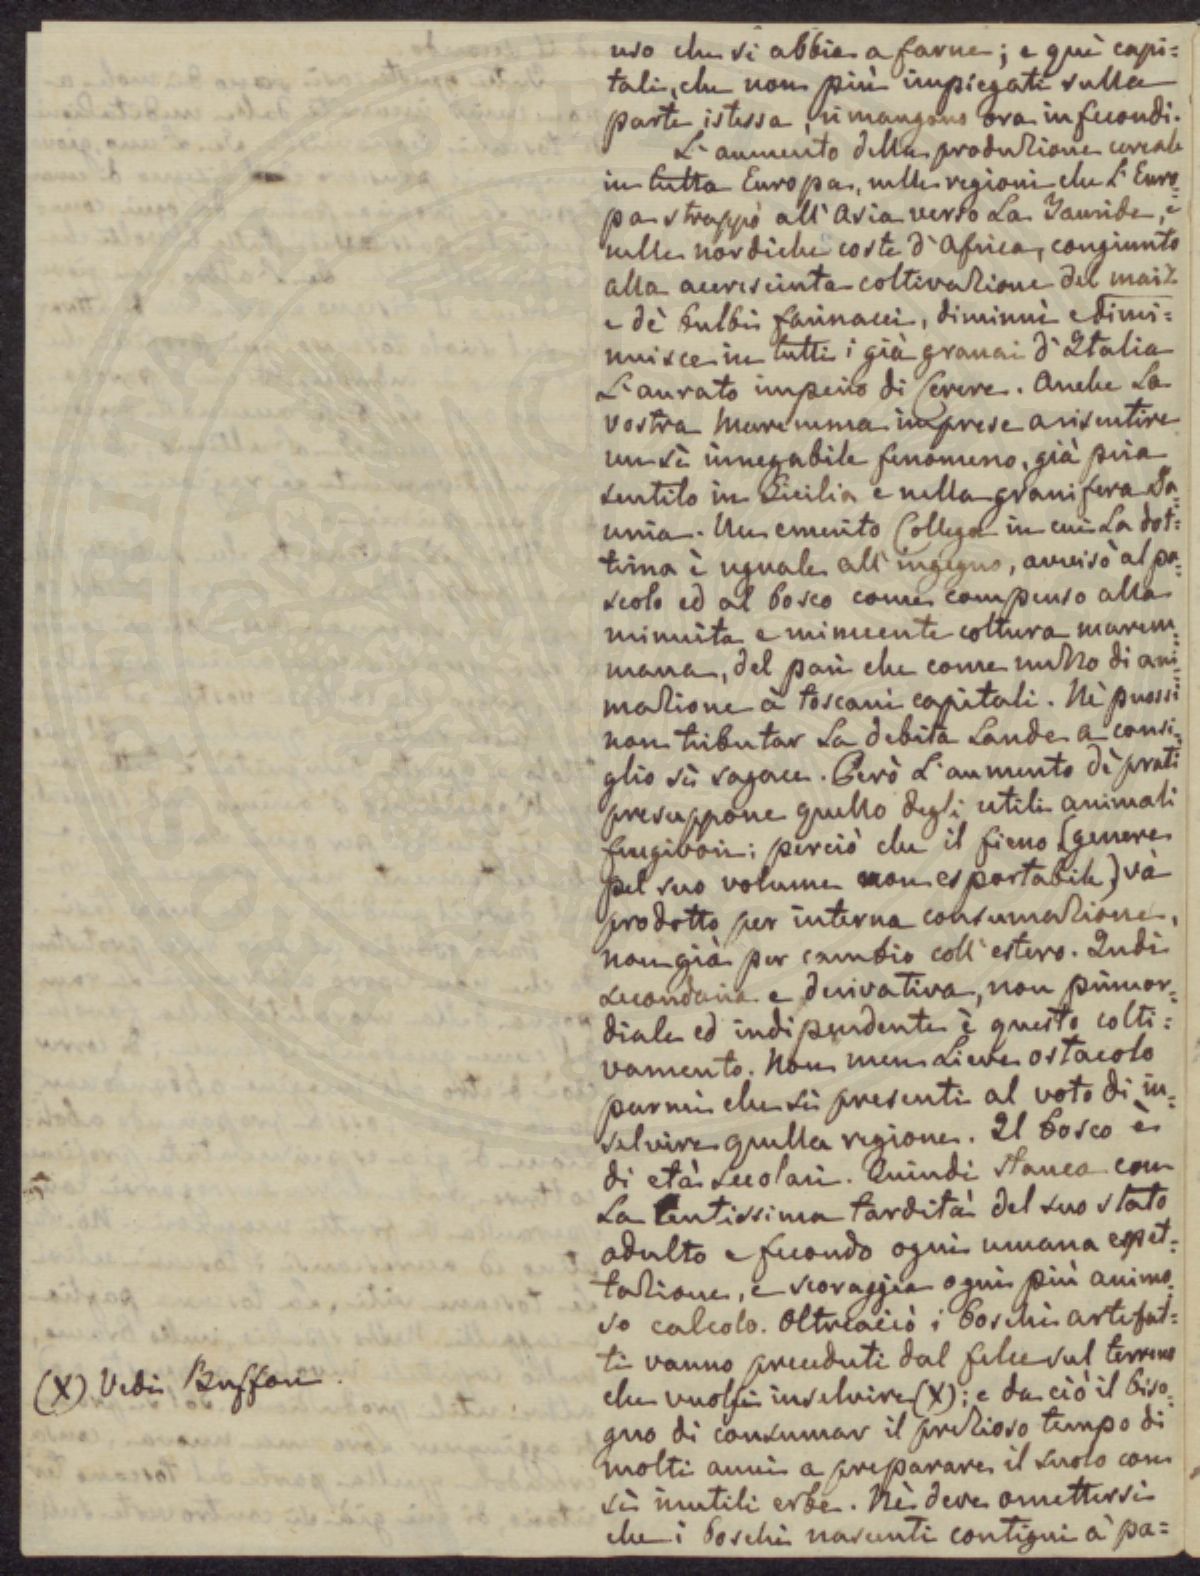 uso che si abbia a farne; e què capi=
tali, che non più impiegati sulla
parte istessa, rimangono ora infecondi.
L'aumento della produzione cereale
in tutta Europa, nelle regioni che l'Euro=
pa strappò all'Asia verso la Tauride, e
nelle nordiche coste d'Africa, congiunto
alla accresciuta coltivazione del maiz
e dè bulbi farinacei, diminuì e dimi=
nuisce in tutti i già granai d'Italia
l'aurato impero di Cerere. Anche la
vostra Maremma imprese a risentire
un sì innegabile fenomeno, già pria
sentito in Sicilia e nella granifera Da=
unia. Un emerito Collega in cui la dot=
trina è uguale all'ingegno, avvisò al pa=
scolo ed al bosco come compenso alla
minuita e minuente coltura marem=
mana, del pari che come mezzo di ani=
mazione à toscani capitali. Nè puossi
non tributar la debita laude a consi=
glio sì sagace. Però l'aumento dè prati
presuppone quello degli utili animali
frugivori; perciò che il fieno (genere
pel suo volume non esportabile) và
prodotto per interna consumazione,
non già per cambio coll'estero. Indi
secondaria e derivativa, non primor=
diale ed indipendente è questo colti=
vamento. Non men lieve ostacolo
parmi che si presenti al voto di in=
selvire quella regione. Il bosco è
di età secolari. Quindi stanca con
la lentissima tardità del suo stato
adulto e fecondo ogni umana espet=
tazione, e scoraggia ogni più animo=
so calcolo. Oltreaciò i boschi artefat=
ti vanno preceduti dal felce sul terreno
che vuolsi inselvire (X); e da ciò il biso=
gno di consumar il prezioso tempo di
molti anni a preparare il suolo con
sì inutili erbe. Nè deve omettersi
che i boschi nascenti contigui à pa=
(X) Vedi Buffon.